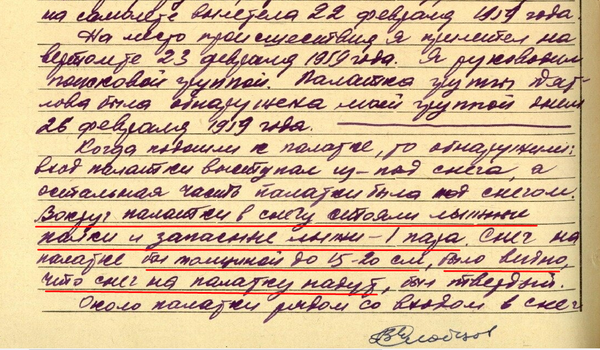 на самолете вылетела 22 февраля 1959 года.
На место происшествия я прилетел на
вертолете 23 февраля 1959 года. Я руководил
поисковой группой. Палатка группы Дят-
лова была обнаружена моей группой днем
26 февраля 1959 года.
Когда подошли к палатке, то обнаружили:
вход палатки выступал из-под снега, а
остальная часть палатки была под снегом.
Вокруг палатки в снегу стояли лыжные
палки и запасные лыжи - 1 пара. Снег на
палатке был толщиной до 15-20 см, было видно,
что снег на палатку надут, был твердый.
Около палатки рядом со входом в снег
ВСлобцов